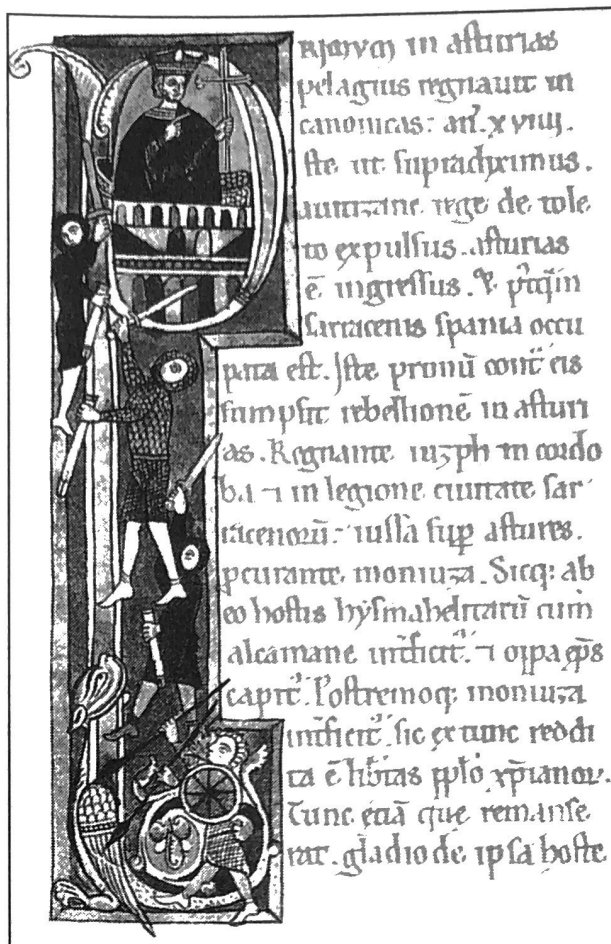 PRIMVM in asturias
pelagius regnauit in
canonicas: an̄. xviiij.
Iste ut supradiximus.
a uitizane rege de tole
to expulsus. asturias
ē ingressus. & p̄tq̄in
sarracenis spania occu
pata est. Iste primū cont̄ eis
sumpsit rebellionē in asturi
as. Regnante iuzeph in cordo
ba ⁊ in legione ciuitate sar
racenorū: iussa sup astures.
pcurante. moniuza. Sicq: ab
eo hostis hysmahelitarū cum
alcamane int̄ficit̄. ⁊ oppa ep̄s
capit̄. Postremoq: moniuza
int̄ficit̄. sic ex tunc reddi
ta ē lib̄tas pplō xp̄ianor.
Tunc etiā que remanse
rat. gladio de ipsa hoste